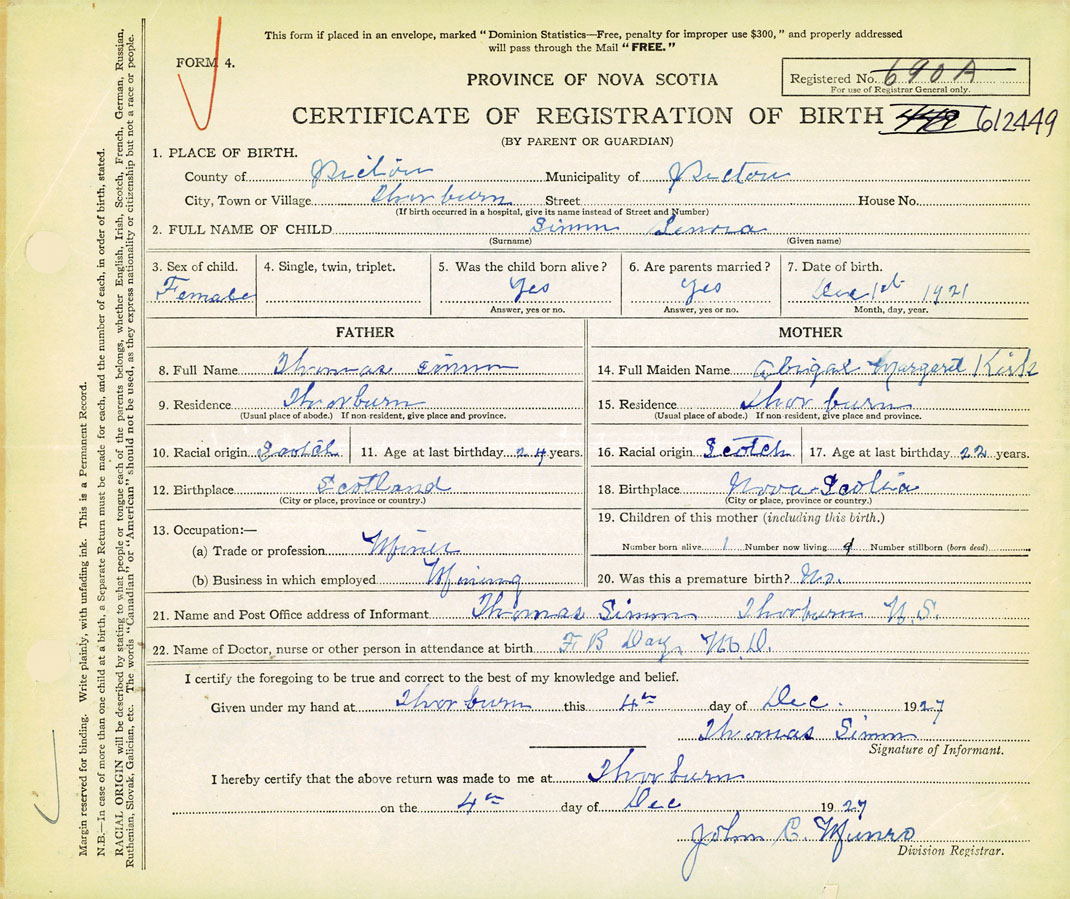 This form if placed in an envelope, marked "Dominion Statistics—Free, penalty for improper use $300," and properly addressed
will pass through the Mail "FREE."
FORM 4.
PROVINCE OF NOVA SCOTIA
Registered No. 690A
For use of Registrar General only.
CERTIFICATE OF REGISTRATION OF BIRTH 612449
(BY PARENT OR GUARDIAN)
1. PLACE OF BIRTH.
County of Pictou Municipality of Pictou
City, Town or Village Thorburn Street House No.
(If birth occurred in a hospital, give its name instead of Street and Number)
2. FULL NAME OF CHILD Simm Lenora
(Surname) (Given name)
3. Sex of child. 4. Single, twin, triplet. 5. Was the child born alive? 6. Are parents married? 7. Date of birth.
Female Yes Yes Dec 1st 1921
Answer, yes or no. Answer, yes or no. Month, day, year.
FATHER MOTHER
8. Full Name Thomas Simm 14. Full Maiden Name Abigal Margaret Kirk
9. Residence Thorburn 15. Residence Thorburn
(Usual place of abode.) If non-resident, give place and province. (Usual place of abode.) If non-resident, give place and province.
10. Racial origin Scotch 11. Age at last birthday 24 years. 16. Racial origin Scotch 17. Age at last birthday 22 years.
12. Birthplace Scotland 18. Birthplace Nova Scotia
(City or place, province or country.) (City or place, province or country.)
13. Occupation:— 19. Children of this mother (including this birth.)
(a) Trade or profession Miner Number born alive 1 Number now living Number stillborn (born dead)
(b) Business in which employed Mining 20. Was this a premature birth? No.
21. Name and Post Office address of Informant Thomas Simm Thorburn N.S.
22. Name of Doctor, nurse or other person in attendance at birth F B Day, M.D.
I certify the foregoing to be true and correct to the best of my knowledge and belief.
Given under my hand at Thorburn this 4th day of Dec. 1927
Thomas Simm
Signature of Informant.
I hereby certify that the above return was made to me at Thorburn
on the 4th day of Dec 1927
John C. Munro
Division Registrar.
Margin reserved for binding. Write plainly, with unfading ink. This is a Permanent Record.
N.B.—In case of more than one child at a birth, a Separate Return must be made for each, and the number of each, in order of birth, stated.
RACIAL ORIGIN will be described by stating to what people or tongue each of the parents belongs, whether English, Irish, Scotch, French, German, Russian,
Ruthenian, Slovak, Galician, etc. The words "Canadian" or "American" should not be used, as they express nationality or citizenship but not a race or people.